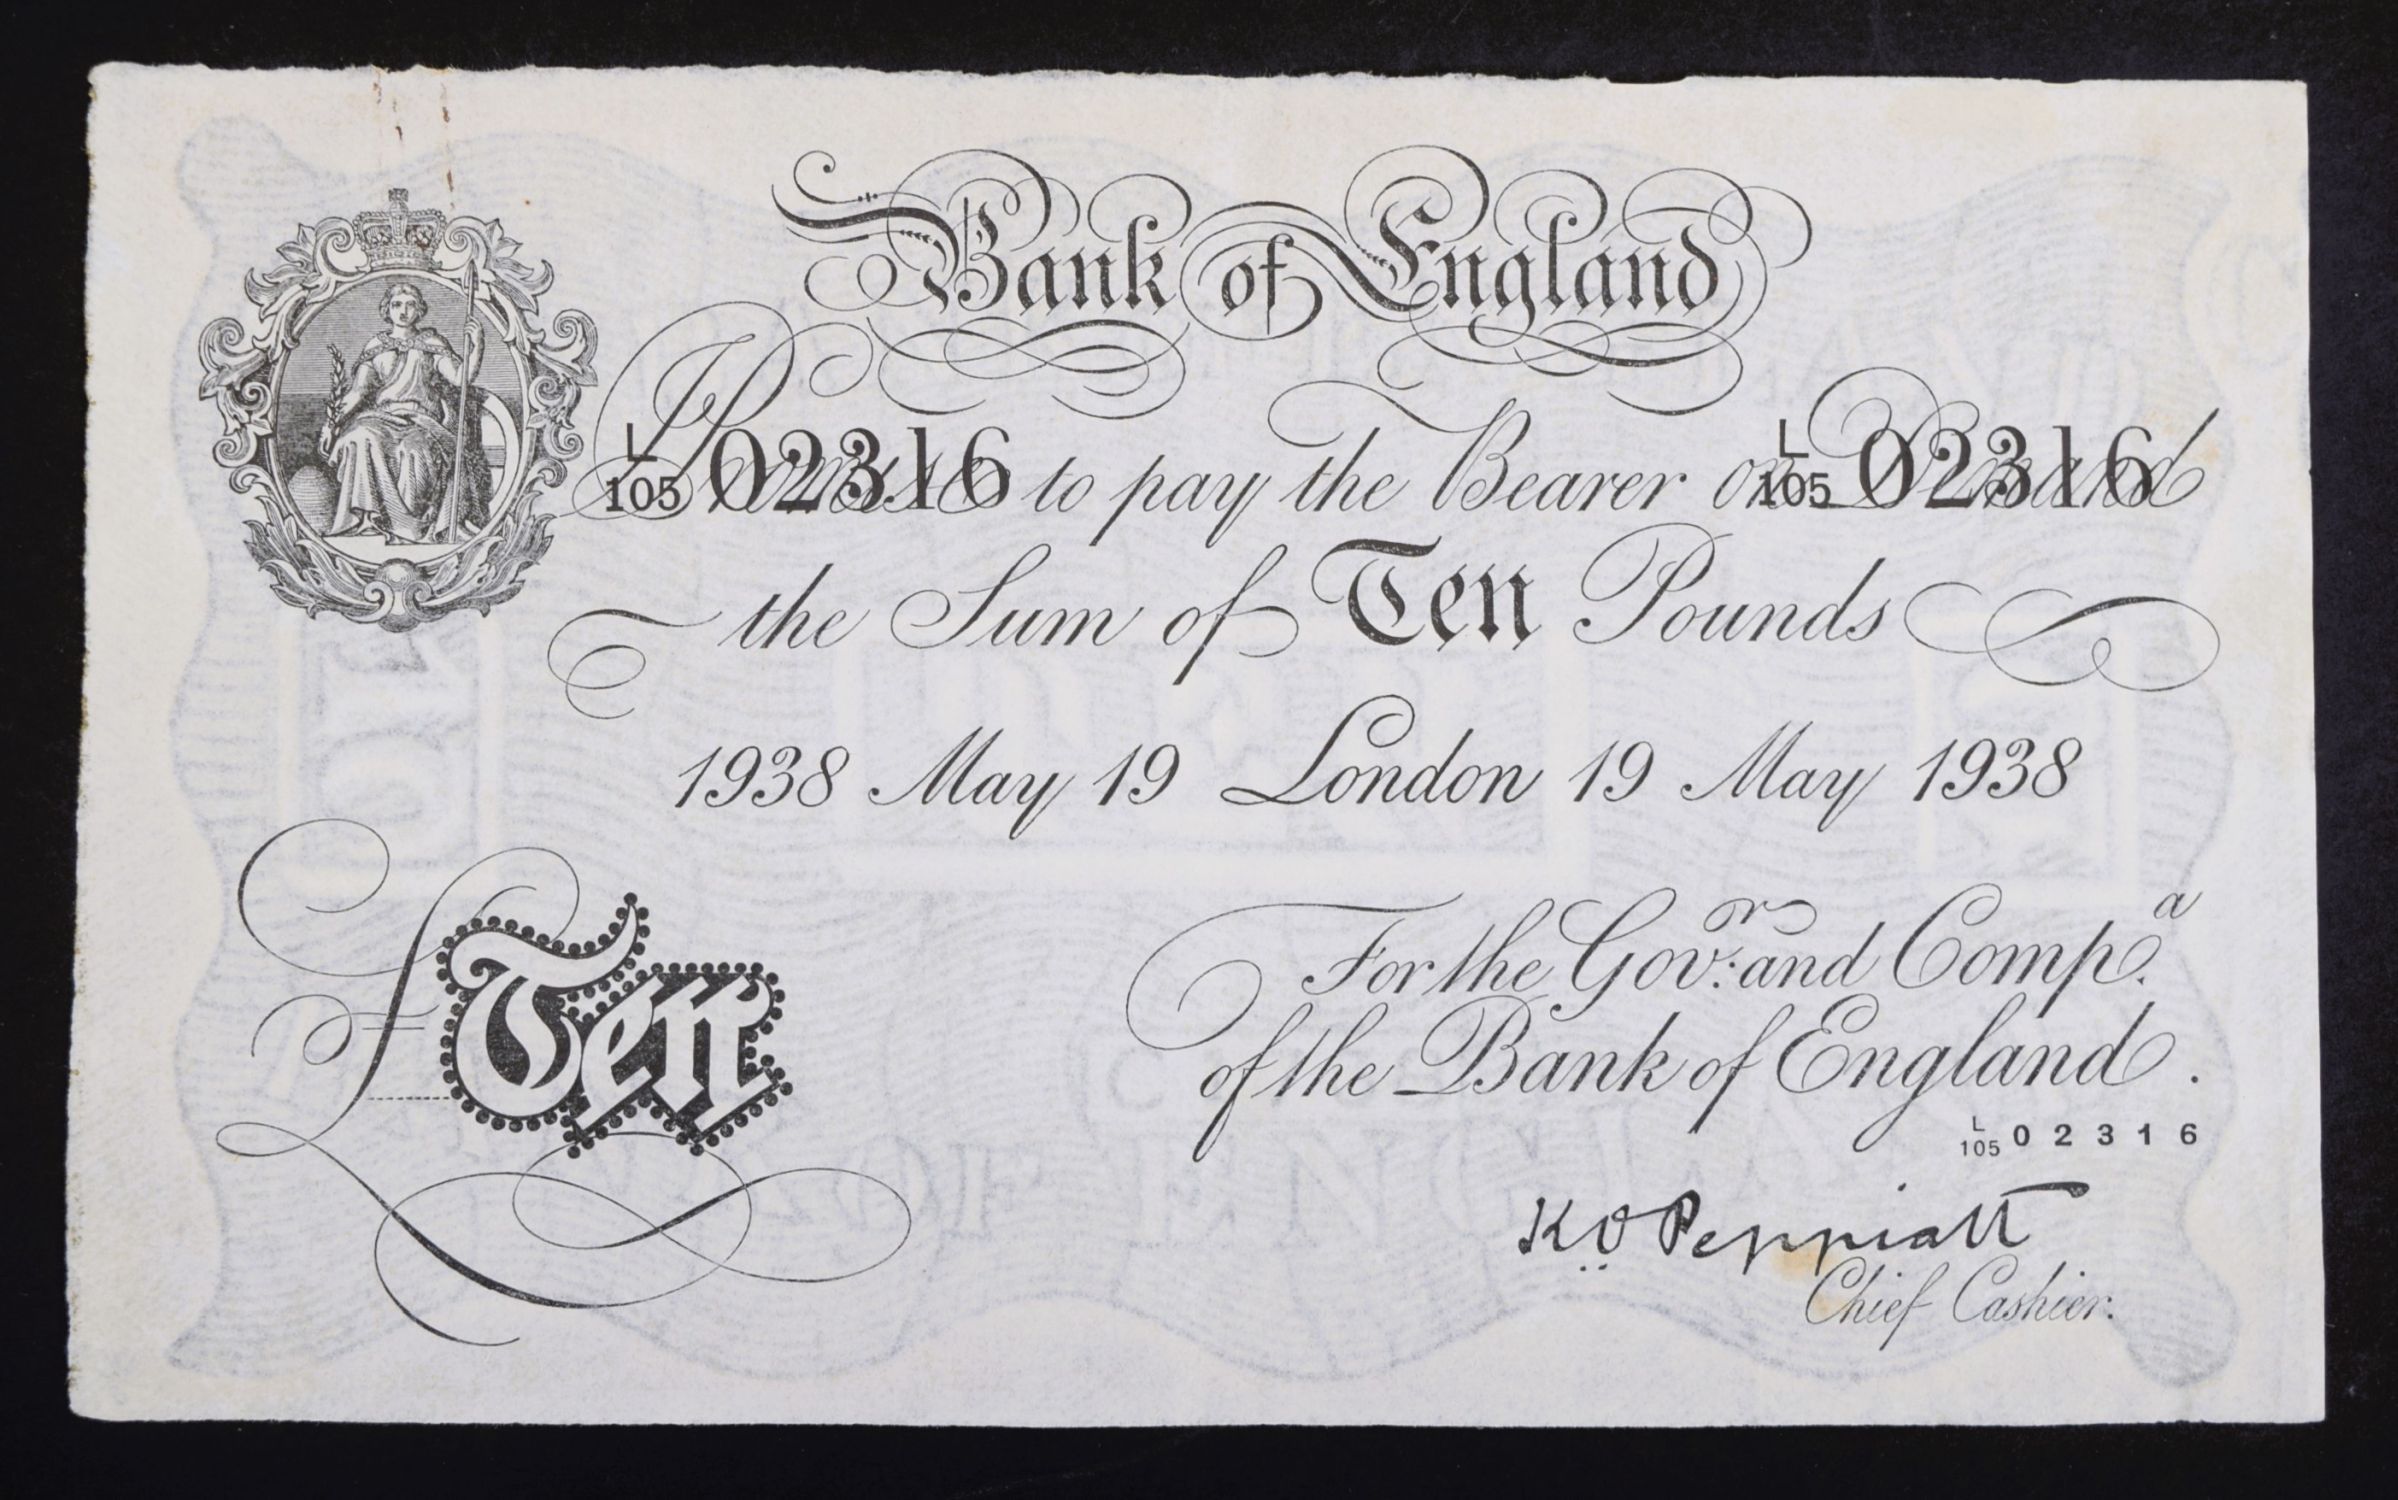 Bank of England
L/105 02316 L/105 02316
I Promise to pay the Bearer on Demand
the Sum of Ten Pounds
1938 May 19 London 19 May 1938
For the Govr: and Compa.
of the Bank of England.
£Ten
L/105 02316
K O Peppiatt
Chief Cashier.